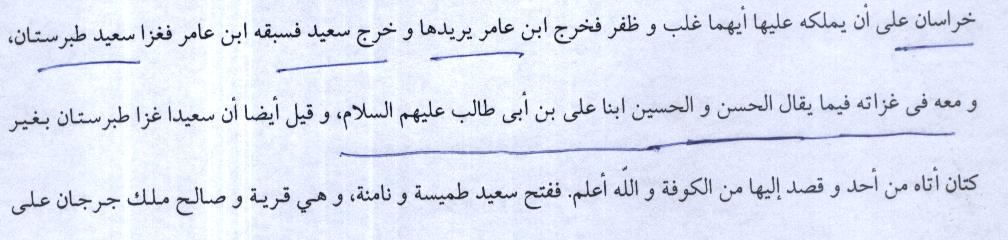 خراسان على أن يملكه عليها أيهما غلب و ظفر فخرج ابن عامر يريدها و خرج سعيد فسبقه ابن عامر فغزا سعيد طبرستان،
و معه فى غزاته فيما يقال الحسن و الحسين ابنا على بن أبى طالب عليهم السلام، و قيل أيضا أن سعيدا غزا طبرستان بغير
كتان أتاه من أحد و قصد إليها من الكوفة و اللّه أعلم. ففتح سعيد طميسة و نامنة، و هي قرية و صالح ملك جرجان على